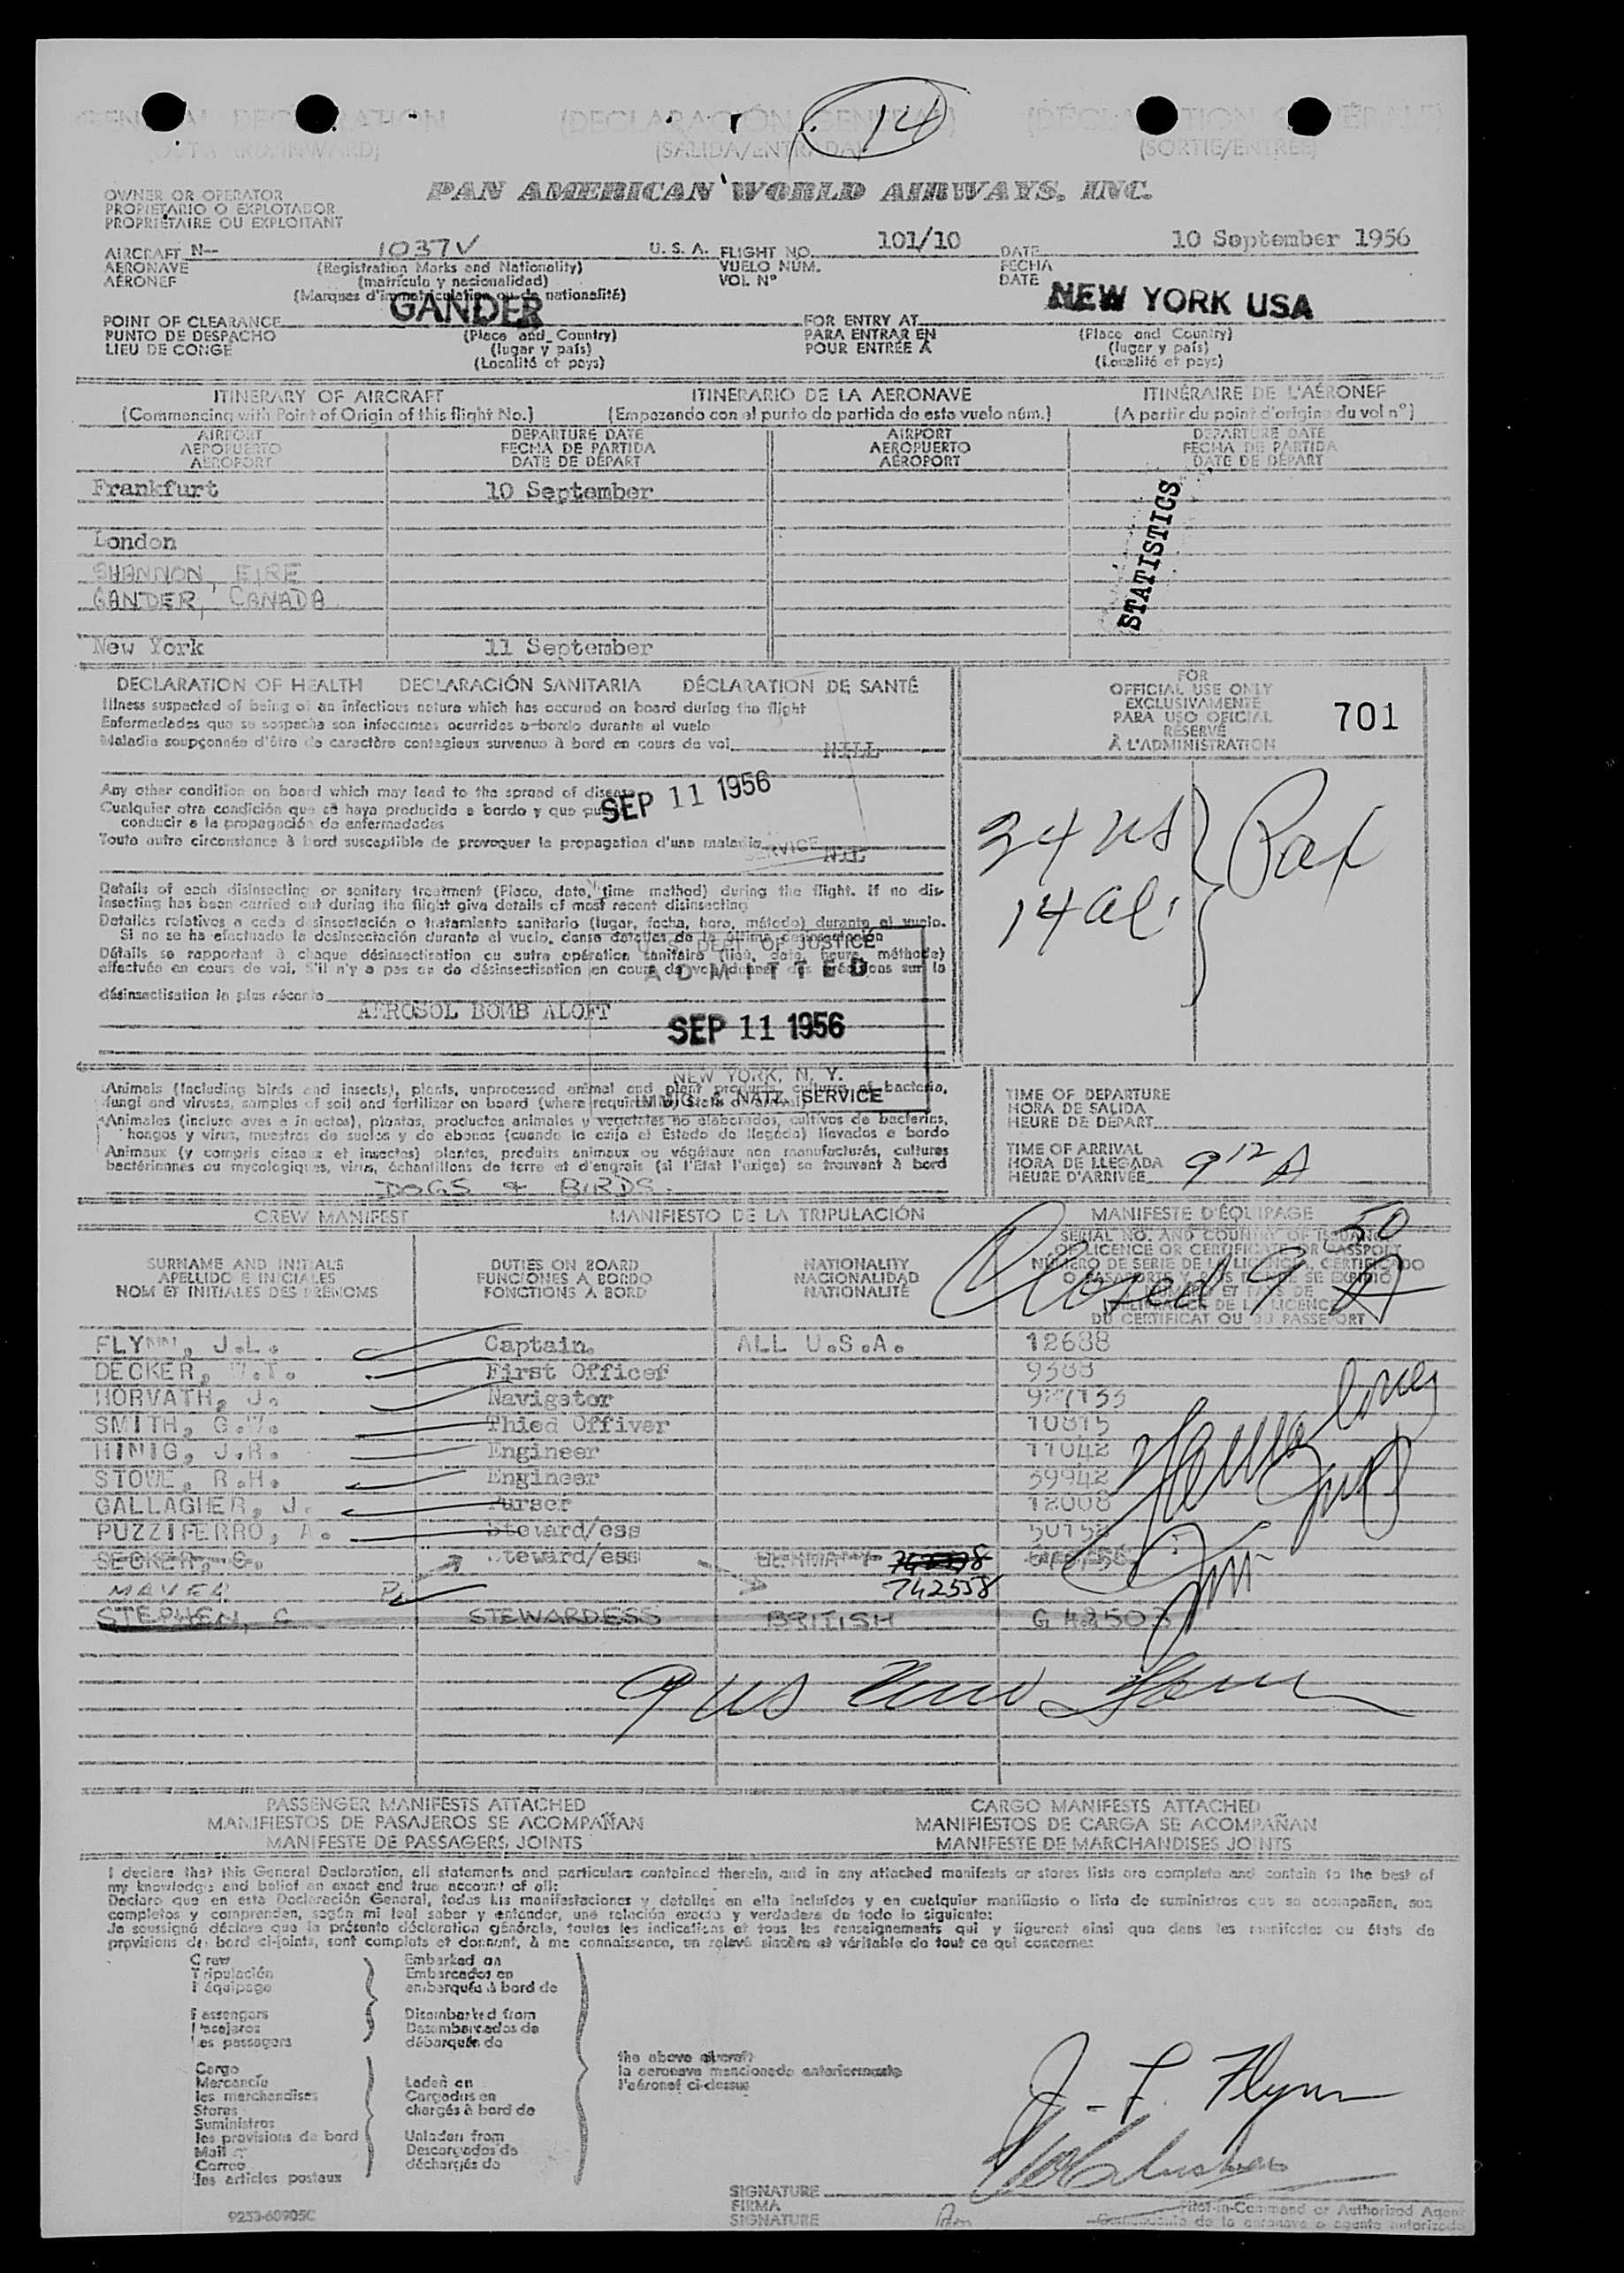 GENERAL DECLARATION (DECLARACIÓN GENERAL) (DÉCLARATION GÉNÉRALE)
(OUTWARD/INWARD) (SALIDA/ENTRADA) (SORTIE/ENTRÉE)
14
OWNER OR OPERATOR
PROPIETARIO O EXPLOTADOR
PROPRIÉTAIRE OU EXPLOITANT
PAN AMERICAN WORLD AIRWAYS, INC.
AIRCRAFT N-- 1037V U. S. A. FLIGHT NO. 101/10 DATE 10 September 1956
AERONAVE (Registration Marks and Nationality) VUELO NÚM. FECHA
AÉRONEF (matrícula y nacionalidad) VOL Nº DATE
(Marques d'immatriculation ou de nationalité)
POINT OF CLEARANCE GANDER FOR ENTRY AT NEW YORK USA
PUNTO DE DESPACHO (Place and Country) PARA ENTRAR EN (Place and Country)
LIEU DE CONGÉ (lugar y país) POUR ENTRÉE À (lugar y país)
(Localité et pays) (Localité et pays)
ITINERARY OF AIRCRAFT ITINERARIO DE LA AERONAVE ITINÉRAIRE DE L'AÉRONEF
(Commencing with Point of Origin of this flight No.) (Empezando con el punto de partida de este vuelo núm.) (A partir du point d'origine du vol nº)
AIRPORT DEPARTURE DATE AIRPORT DEPARTURE DATE
AEROPUERTO FECHA DE PARTIDA AEROPUERTO FECHA DE PARTIDA
AÉROPORT DATE DE DÉPART AÉROPORT DATE DE DÉPART
Frankfurt 10 September
STATISTICS
London
SHANNON, EIRE
GANDER, CANADA
New York 11 September
DECLARATION OF HEALTH DECLARACIÓN SANITARIA DÉCLARATION DE SANTÉ
Illness suspected of being of an infectious nature which has occured on board during the flight
Enfermedades que se sospecha son infecciosas ocurridas a bordo durante el vuelo
Maladie soupçonnée d'être de caractère contagieux survenue à bord en cours de vol NILL
FOR
OFFICIAL USE ONLY
EXCLUSIVAMENTE
PARA USO OFICIAL
RÉSERVÉ
À L'ADMINISTRATION
701
Any other condition on board which may lead to the spread of disease
SEP 11 1956
Cualquier otra condición que se haya producido a bordo y que pueda
conducir a la propagación de enfermedades
Toute autre circonstance à bord susceptible de provoquer la propagation d'une maladie NIL
SERVICE
34 US
14 al.
Pax
Details of each disinsecting or sanitary treatment (Place, date, time method) during the flight. If no dis-
insecting has been carried out during the flight give details of most recent disinsecting
Detalles relativos a cada desinsectación o tratamiento sanitario (lugar, fecha, hora, método) durante el vuelo.
Si no se ha efectuado la desinsectación durante el vuelo, dense detalles de la última desinsectación
Détails se rapportant à chaque désinsectisation ou autre opération sanitaire (lieu, date, heure, méthode)
effectuée en cours de vol. S'il n'y a pas eu de désinsectisation en cours de vol donner des précisions sur la
désinsectisation la plus récente
AEROSOL BOMB ALOFT
U. S. DEPT. OF JUSTICE
ADMITTED
SEP 11 1956
NEW YORK, N. Y.
IMMIG. & NATZ. SERVICE
Animals (including birds and insects), plants, unprocessed animal and plant products, cultures of bacteria,
fungi and viruses, samples of soil and fertilizer on board (where required by State of arrival)
Animales (incluso aves e insectos), plantas, productos animales y vegetales no elaborados, cultivos de bacterias,
hongos y virus, muestras de suelos y de abonos (cuando lo exija el Estado de llegada) llevados a bordo
Animaux (y compris oiseaux et insectes) plantes, produits animaux ou végétaux non manufacturés, cultures
bactériennes ou mycologiques, virus, échantillons de terre et d'engrais (si l'Etat l'exige) se trouvant à bord
DOGS & BIRDS.
TIME OF DEPARTURE
HORA DE SALIDA
HEURE DE DÉPART
TIME OF ARRIVAL
HORA DE LLEGADA 9 12 A
HEURE D'ARRIVÉE
CREW MANIFEST MANIFIESTO DE LA TRIPULACIÓN MANIFESTE D'ÉQUIPAGE
Closed 9 50 A
SURNAME AND INITIALS DUTIES ON BOARD NATIONALITY
APELLIDO E INICIALES FUNCIONES A BORDO NACIONALIDAD
NOM ET INITIALES DES PRÉNOMS FONCTIONS À BORD NATIONALITÉ
SERIAL NO. AND COUNTRY OF ISSUANCE
OF LICENCE OR CERTIFICATE OR PASSPORT
NÚMERO DE SERIE DE LA LICENCIA, CERTIFICADO
O PASAPORTE Y PAIS DONDE SE EXPIDIÓ
NUMÉRO ET PAYS DE
DÉLIVRANCE DE LA LICENCE
DU CERTIFICAT OU DU PASSEPORT
FLYNN, J.L. Captain. ALL U.S.A. 12688
DECKER, W.T. First Officer 9388
HORVATH, J. Navigator
SMITH, G.W. Thied Offiver 10815
HINIG, J.R. Engineer 11042
STOWE, R.H. Engineer 39942
GALLAGHER, J. Purser 12008
PUZZIFERRO, A. Steward/ess 50758
SECKER, G. Steward/ess GERMANY
MAYER 742558
STEPHEN, G STEWARDESS BRITISH G 42503
9 US
PASSENGER MANIFESTS ATTACHED CARGO MANIFESTS ATTACHED
MANIFIESTOS DE PASAJEROS SE ACOMPAÑAN MANIFIESTOS DE CARGA SE ACOMPAÑAN
MANIFESTE DE PASSAGERS, JOINTS MANIFESTE DE MARCHANDISES JOINTS
I declare that this General Declaration, all statements and particulars contained therein, and in any attached manifests or stores lists are complete and contain to the best of
my knowledge and belief an exact and true account of all:
Declaro que en esta Declaración General, todas las manifestaciones y detalles en ella incluídos y en cualquier manifiesto o lista de suministros que se acompañan, son
completos y comprenden, según mi leal saber y entender, una relación exacta y verdadera de todo lo siguiente:
Je soussigné déclare que la présente déclaration générale, toutes les indications et tous les renseignements qui y figurent ainsi que dans les manifestes ou états de
provisions de bord ci-joints, sont complets et donnent, à ma connaissance, un relevé sincère et véritable de tout ce qui concerne:
Crew Embarked on
Tripulación Embarcados en
l'équipage embarqués à bord de
Passengers Disembarked from
Pasajeros Desembarcados de
les passagers débarqués de
the above aircraft
la aeronave mencionada anteriormente
l'aéronef ci-dessus
Cargo
Mercancía Laden on
les marchandises Cargados en
Stores chargés à bord de
Suministros
les provisions de bord Unladen from
Mail Descargados de
Correo déchargés de
les articles postaux
J. L. Flynn
SIGNATURE
FIRMA Pilot-in-Command or Authorized Agent
SIGNATURE Comandante de la aeronave o agente autorizado
9253-60905C